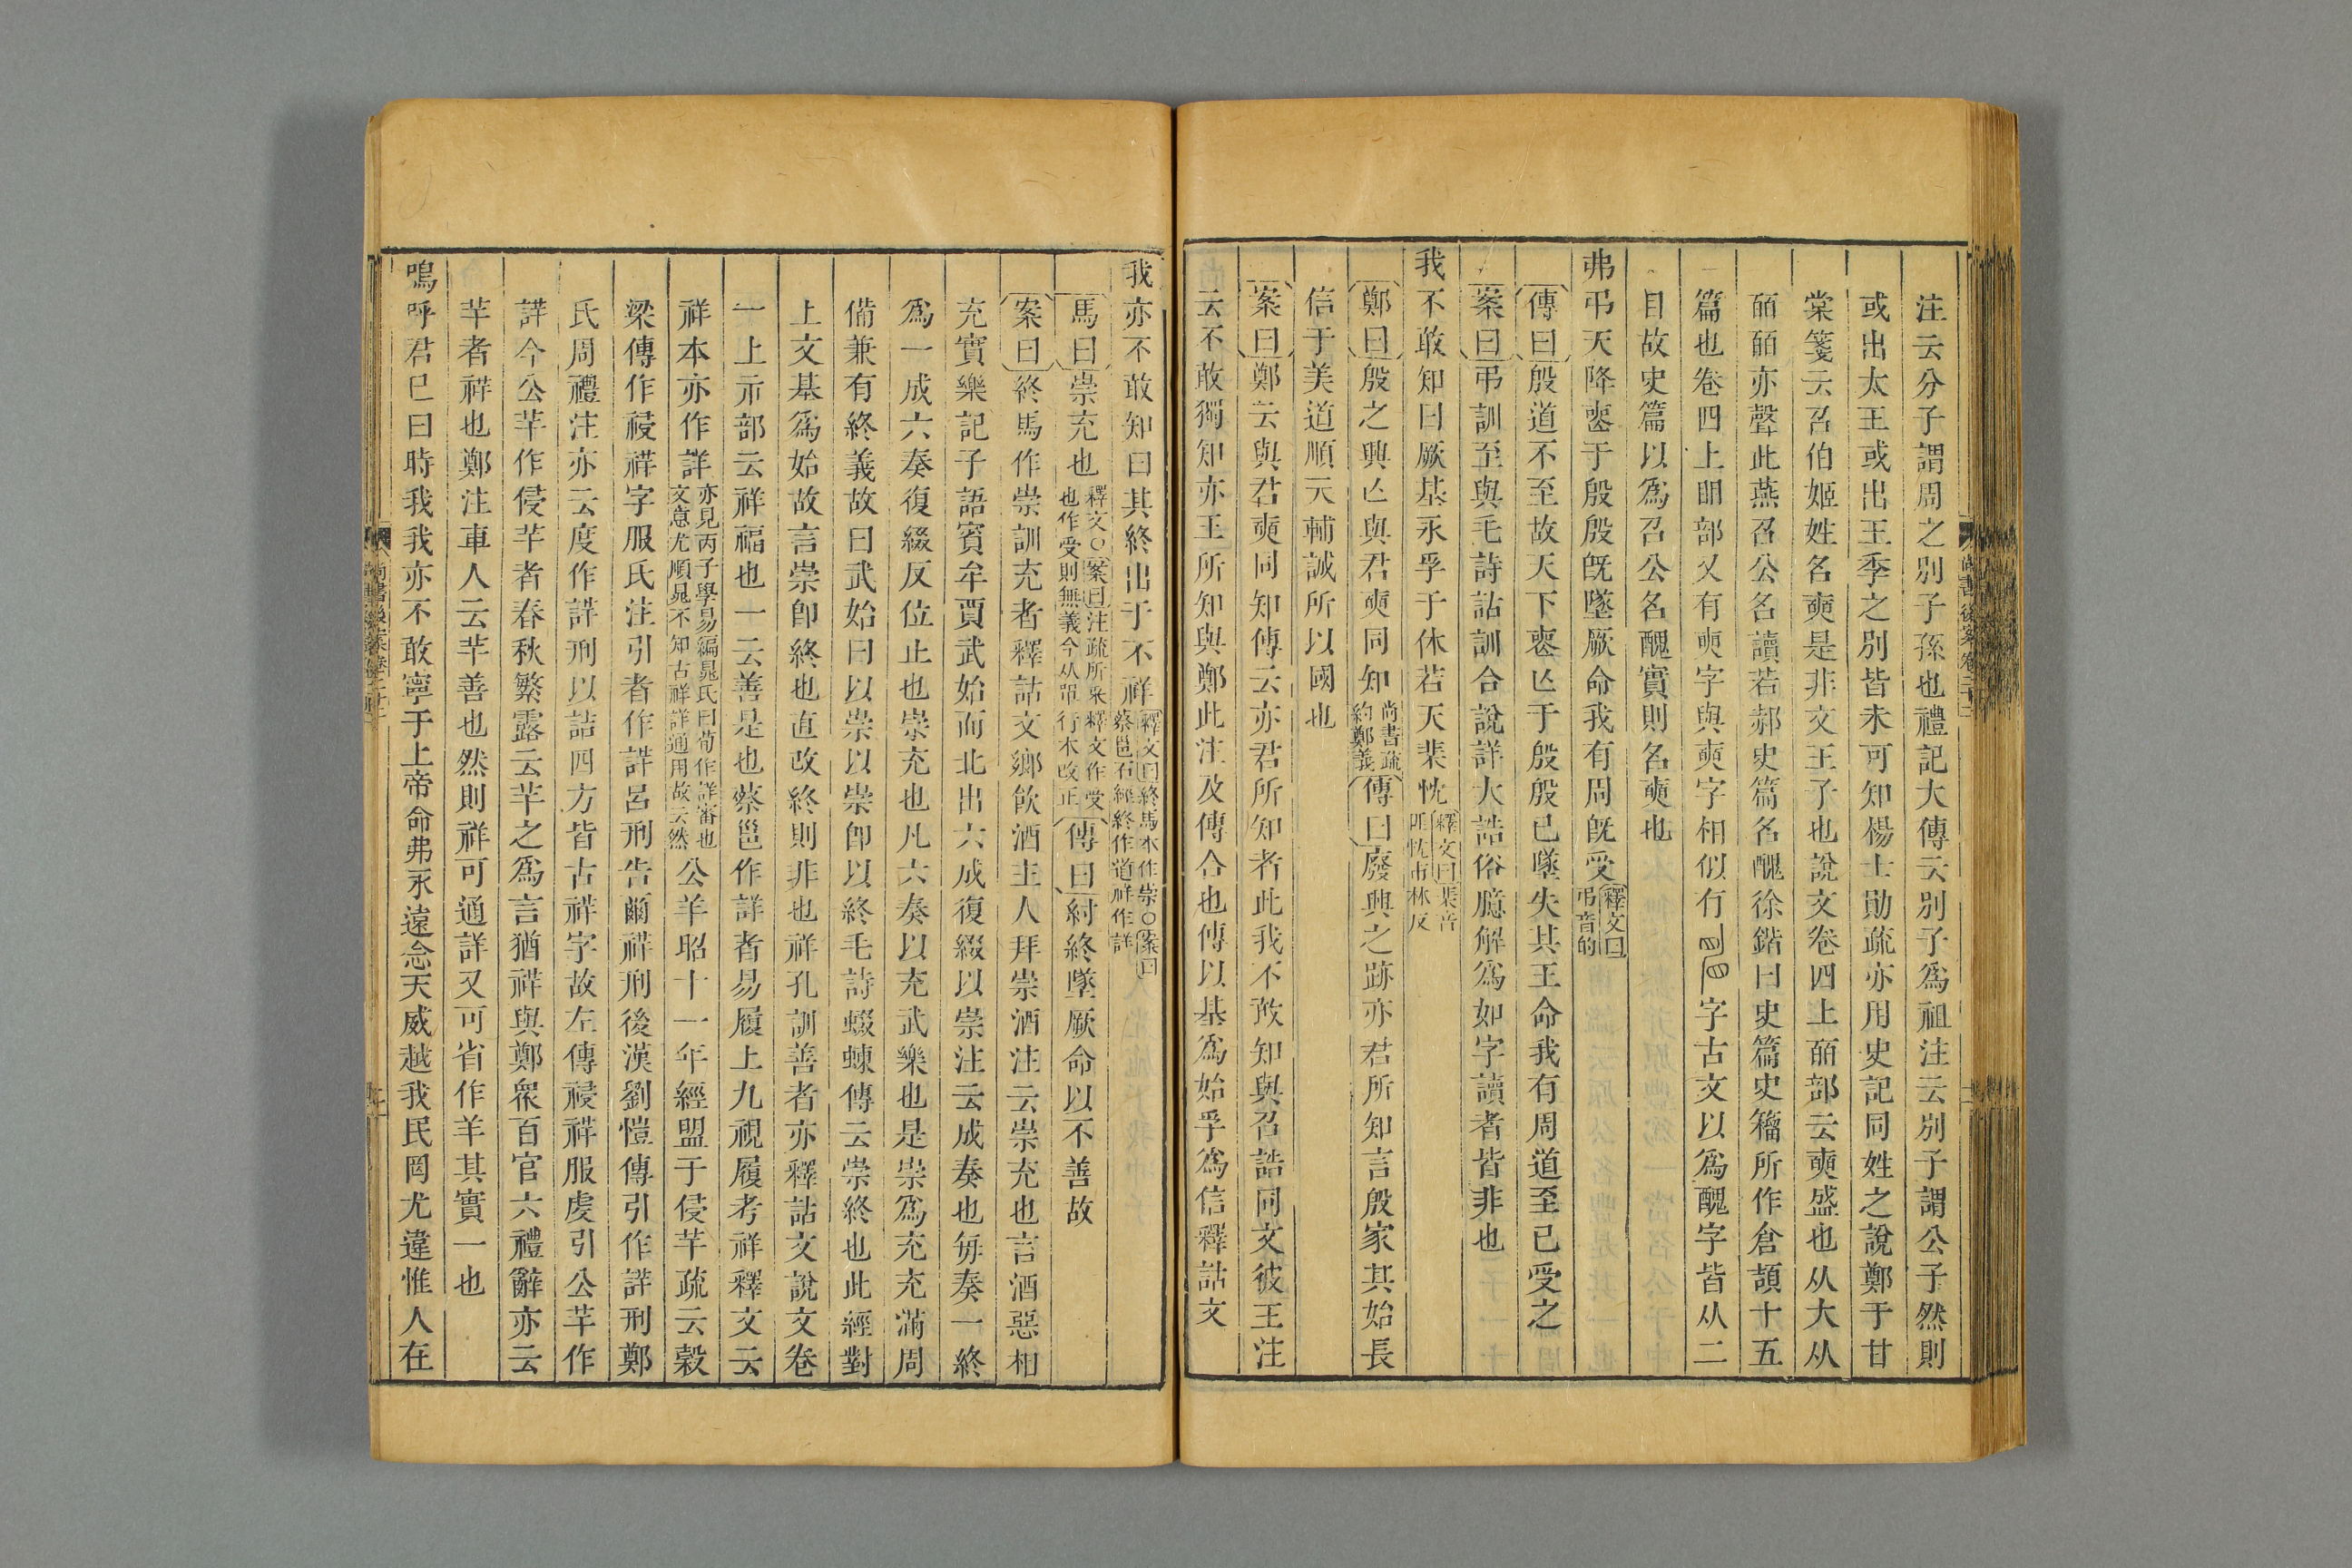 注云分子謂周之別子孫也禮記大傳云別子爲祖注云別子謂公子然則
或出太王或出王季之別皆未可知楊士勛疏亦用史記同姓之說鄭于甘
棠箋云召伯姬姓名奭是非文王子也說文卷四上皕部云奭盛也从大从
皕皕亦聲此燕召公名讀若郝史篇名醜徐鍇曰史篇史籀所作倉頡十五
篇也卷四上䀠部又有奭字與奭字相似有字古文以爲醜字皆从二
目故史篇以爲召公名醜實則名奭也
弗弔天降喪于殷殷旣墜厥命我有周旣受釋文曰弔音的
傳曰殷道不至故天下喪亾于殷殷已墜失其王命我有周道至已受之
案曰弔訓至與毛詩詁訓合說詳大誥俗臆解爲如字讀者皆非也
我不敢知曰厥基永孚于休若天棐忱釋文曰棐音匪忱市林反
鄭曰殷之興亾與君奭同知尚書疏約鄭義傳曰廢興之跡亦君所知言殷家其始長
信于美道順天輔誠所以國也
案曰鄭云與君奭同知傳云亦君所知者此我不敢知與召誥同文彼王注
云不敢獨知亦王所知與鄭此注及傳合也傳以基爲始孚爲信釋詁文
尚書後案卷二十二
我亦不敢知曰其終出于不祥釋文曰終馬本作崇○案曰蔡邕石經終作道祥作詳
馬曰崇充也釋文○案曰注疏所采釋文作受也作受則無義今从單行本改正傳曰紂終墜厥命以不善故
案曰終馬作崇訓充者釋詁文鄉飮酒主人拜崇酒注云崇充也言酒惡相
充實樂記子語賓牟賈武始而北出六成復綴以崇注云成奏也每奏一終
爲一成六奏復綴反位止也崇充也凡六奏以充武樂也是崇爲充充滿周
備兼有終義故曰武始曰以崇以崇卽以終毛詩蝃蝀傳云崇終也此經對
上文基爲始故言崇卽終也直改終則非也祥孔訓善者亦釋詁文說文卷
一上示部云祥福也一云善是也蔡邕作詳者易履上九視履考祥釋文云
祥本亦作詳亦見丙子學易編晁氏曰荀作詳審也文意尤順晁不知古祥詳通用故云然公羊昭十一年經盟于侵羊疏云穀
梁傳作祲祥字服氏注引者作詳呂刑告爾祥刑後漢劉愷傳引作詳刑鄭
氏周禮注亦云度作詳刑以詰四方皆古祥字故左傳祲祥服虔引公羊作
詳今公羊作侵羊者春秋繁露云羊之爲言猶祥與鄭衆百官六禮辭亦云
羊者祥也鄭注車人云羊善也然則祥可通詳又可省作羊其實一也
嗚呼君已曰時我我亦不敢寧于上帝命弗永遠念天威越我民罔尤違惟人在